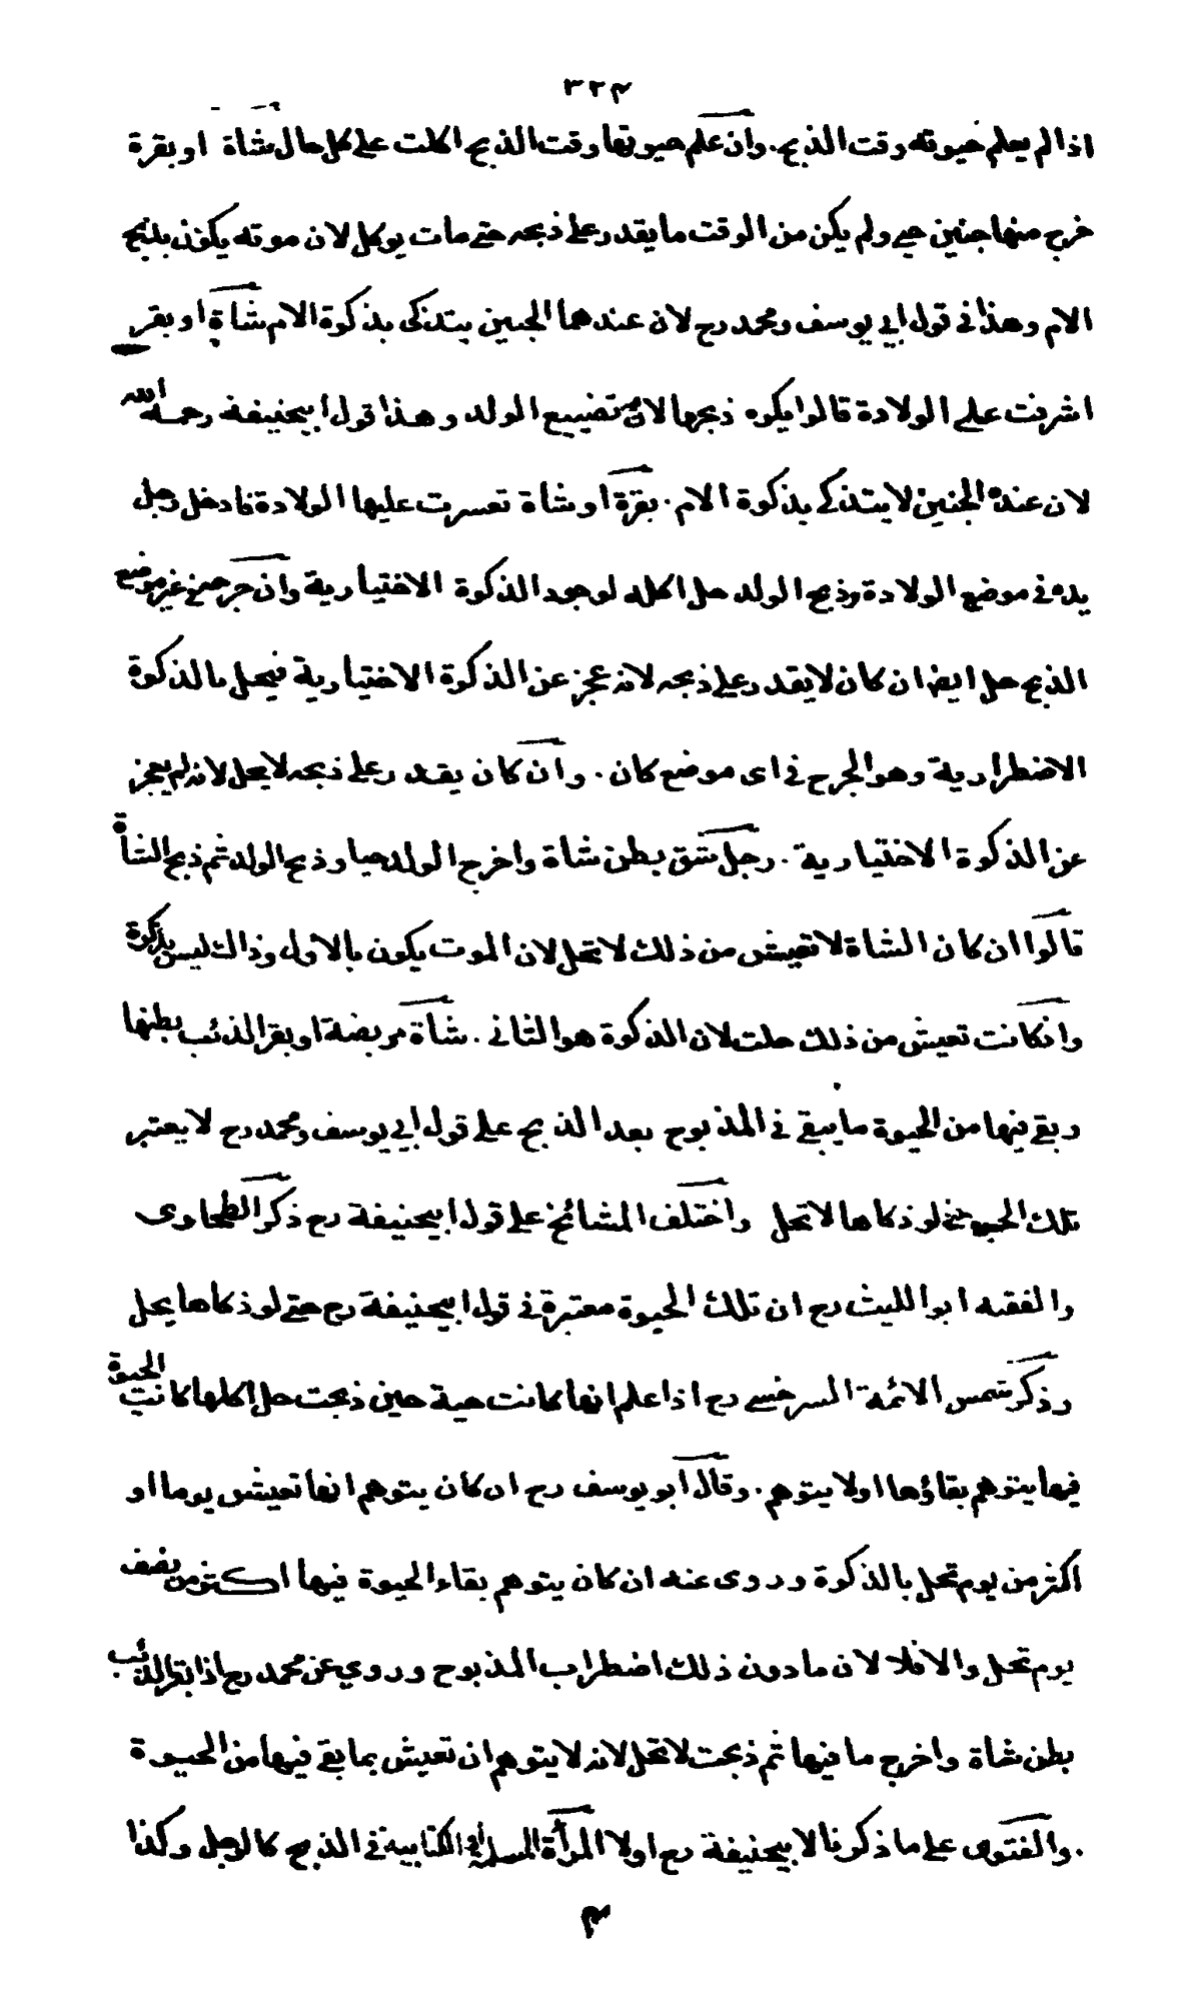 ٣٢٤
اذا لم يعلم حيوته وقت الذبح. وان علم حيوتها وقت الذبح اكلت على كل حال شاة او بقرة
خرج منها جنين حي ولم يكن من الوقت ما يقدر على ذبحه حتى مات يوكل لان موته يكون بذبح
الام وهذا في قول ابي يوسف ومحمد رح لان عندهما الجنين يتذكى بذكوة الام شاة او بقر
اشرفت على الولادة قالوا يكره ذبحها لان تضييع الولد وهذا قول ابيحنيفة رحمه الله
لان عنده الجنين لا يتذكى بذكوة الام. بقرة او شاة تعسرت عليها الولادة فادخل رجل
يده في موضع الولادة وذبح الولد حل اكله لوجود الذكوة الاختيارية وان جرحه في غير موضع
الذبح حل ايضا ان كان لا يقدر على ذبحه لانه عجز عن الذكوة الاختيارية فيحل بالذكوة
الاضطرارية وهو الجرح في اى موضع كان. وان كان يقدر على ذبحه لا يحل لانه لم يعجز
عن الذكوة الاختيارية. رجل شق بطن شاة واخرج الولد حيا وذبح الولد ثم ذبح الشاة
قالوا ان كان الشاة لا تعيش من ذلك لا تحل لان الموت يكون بالاول وذالك ليس بذكوة
وانكانت تعيش من ذلك حلت لان الذكوة هو الثانى. شاة مريضة او بقر الذئب بطنها
وبقى فيها من الحيوة ما يبقى في المذبوح بعد الذبح على قول ابي يوسف ومحمد رح لا يعتبر
تلك الحيوة حتى لو ذكاها لا تحل واختلف المشائخ على قول ابيحنيفة رح ذكر الطحاوى
والفقيه ابو الليث رح ان تلك الحيوة معتبرة في قول ابيحنيفة رح حتى لو ذكاها يحل
وذكر شمس الائمة السرخسي رح اذا علم انها كانت حية حين ذبحت حل اكلها كانت الحيوة
فيها يتوهم بقاؤها او لا يتوهم. وقال ابو يوسف رح ان كان يتوهم انها تعيش يوما او
اكثر من يوم تحل بالذكوة وروى عنه ان كان يتوهم بقاء الحيوة فيها اكثر من نصف
يوم تحل والا فلا لان ما دون ذلك اضطراب المذبوح وروي عن محمد رح اذا بقر الذئب
بطن شاة واخرج ما فيها ثم ذبحت لا تحل لانه لا يتوهم ان تعيش بما بقى فيها من الحيوة
.والفتوى على ما ذكرنا لابيحنيفة رح اولا المرأة المسلمة او الكتابية في الذبح كالرجل وكذا
م